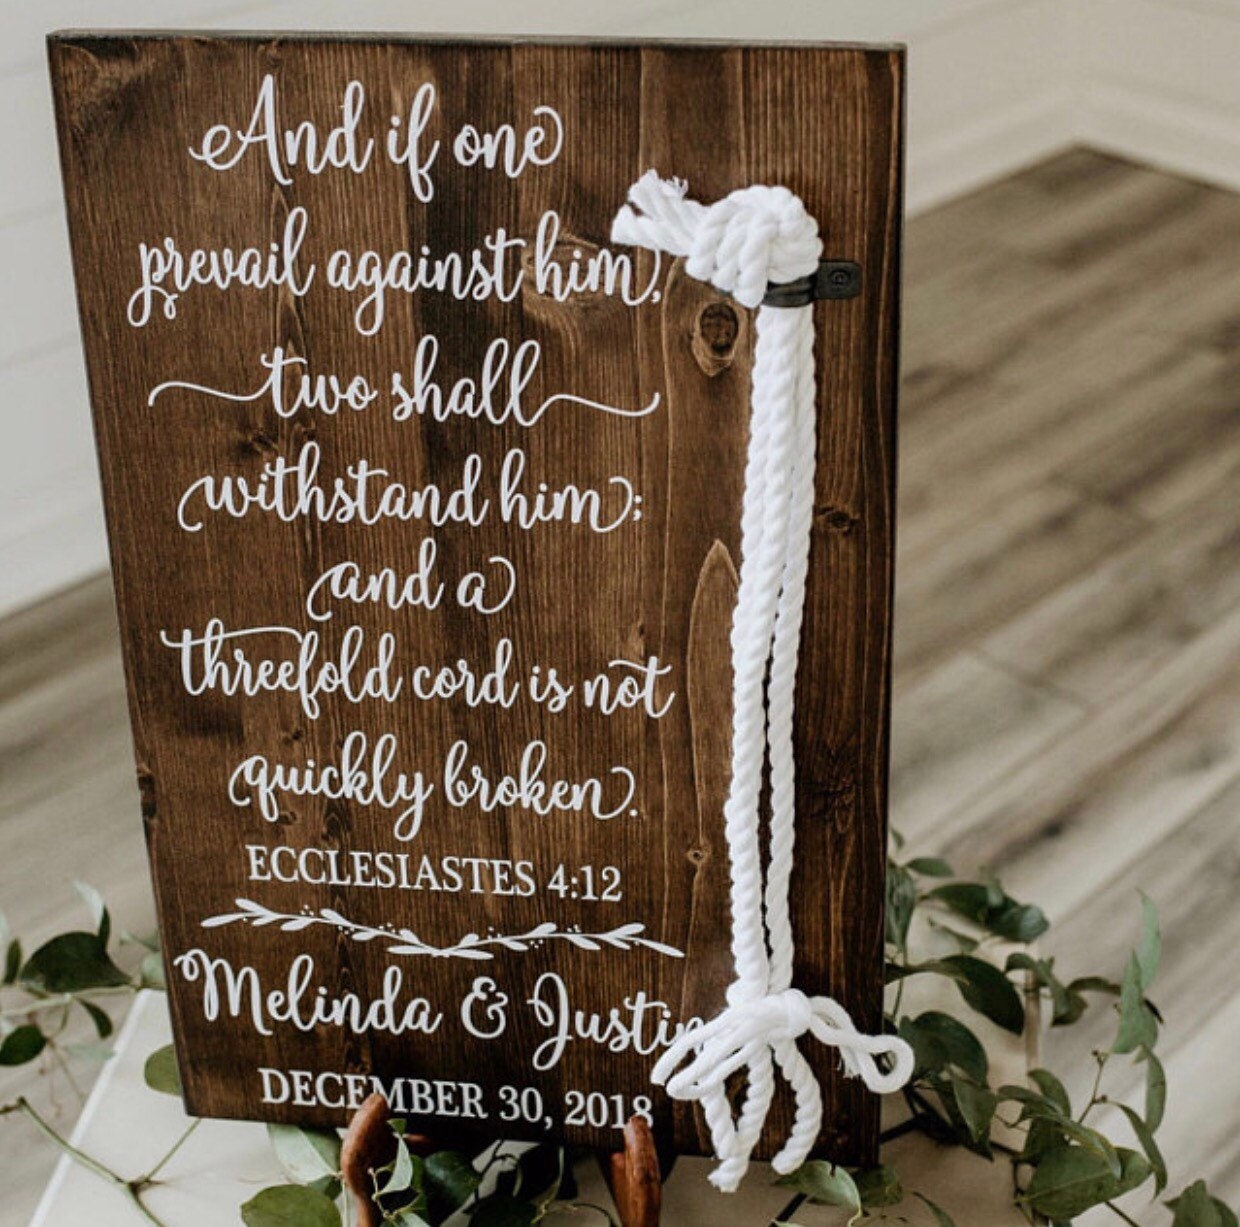 And if one
prevail against him,
two shall
withstand him;
and a
threefold cord is not
quickly broken.
ECCLESIASTES 4:12
Melinda & Justin
DECEMBER 30, 2018